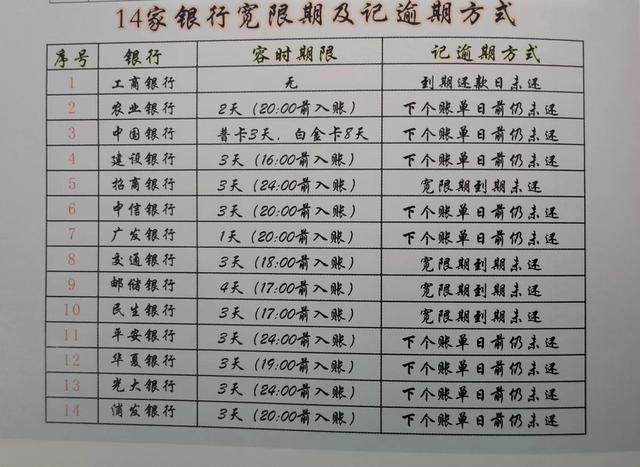 14家银行宽限期及记逾期方式
序号 银行 容时期限 记逾期方式
1 工商银行 无 到期还款日未还
2 农业银行 2天（20:00前入账） 下个账单日前仍未还
3 中国银行 普卡3天，白金卡8天 下个账单日前仍未还
4 建设银行 3天（16:00前入账） 下个账单日前仍未还
5 招商银行 3天（24:00前入账） 宽限期到期未还
6 中信银行 3天（20:00前入账） 下个账单日前仍未还
7 广发银行 1天（20:00前入账） 下个账单日前仍未还
8 交通银行 3天（18:00前入账） 宽限期到期未还
9 邮储银行 4天（17:00前入账） 宽限期到期未还
10 民生银行 3天（17:00前入账） 宽限期到期未还
11 平安银行 3天（24:00前入账） 下个账单日前仍未还
12 华夏银行 3天（19:00前入账） 下个账单日前仍未还
13 光大银行 3天（24:00前入账） 下个账单日前仍未还
14 浦发银行 3天（20:00前入账） 下个账单日前仍未还